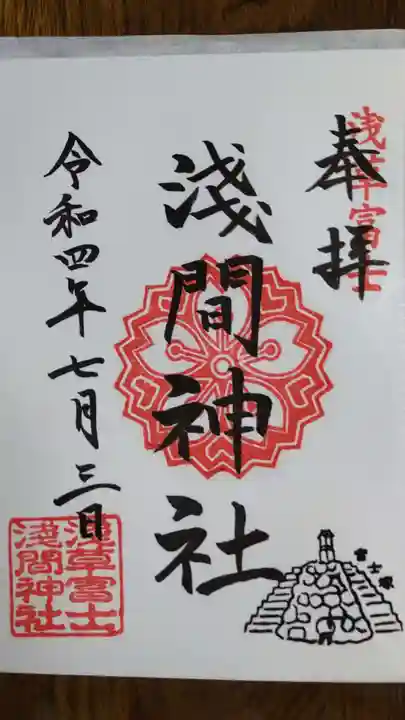 浅草富士
奉拝
淺間神社
富士塚
令和四年七月三日
浅草富士
淺間神社